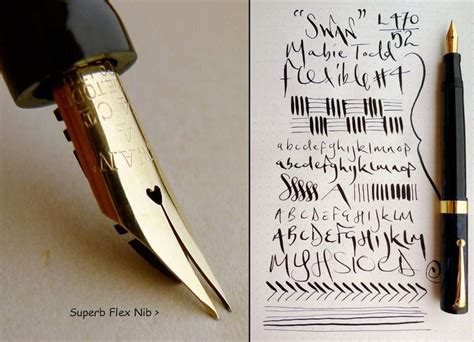 Superb Flex Nib >
"SWAN" L470/52
Mabie Todd
Flexible #4
abcdefghijklmnop
abcdefghijklmnop
ABCDEFGHIJKLM
ABCDEFGHIJKLM